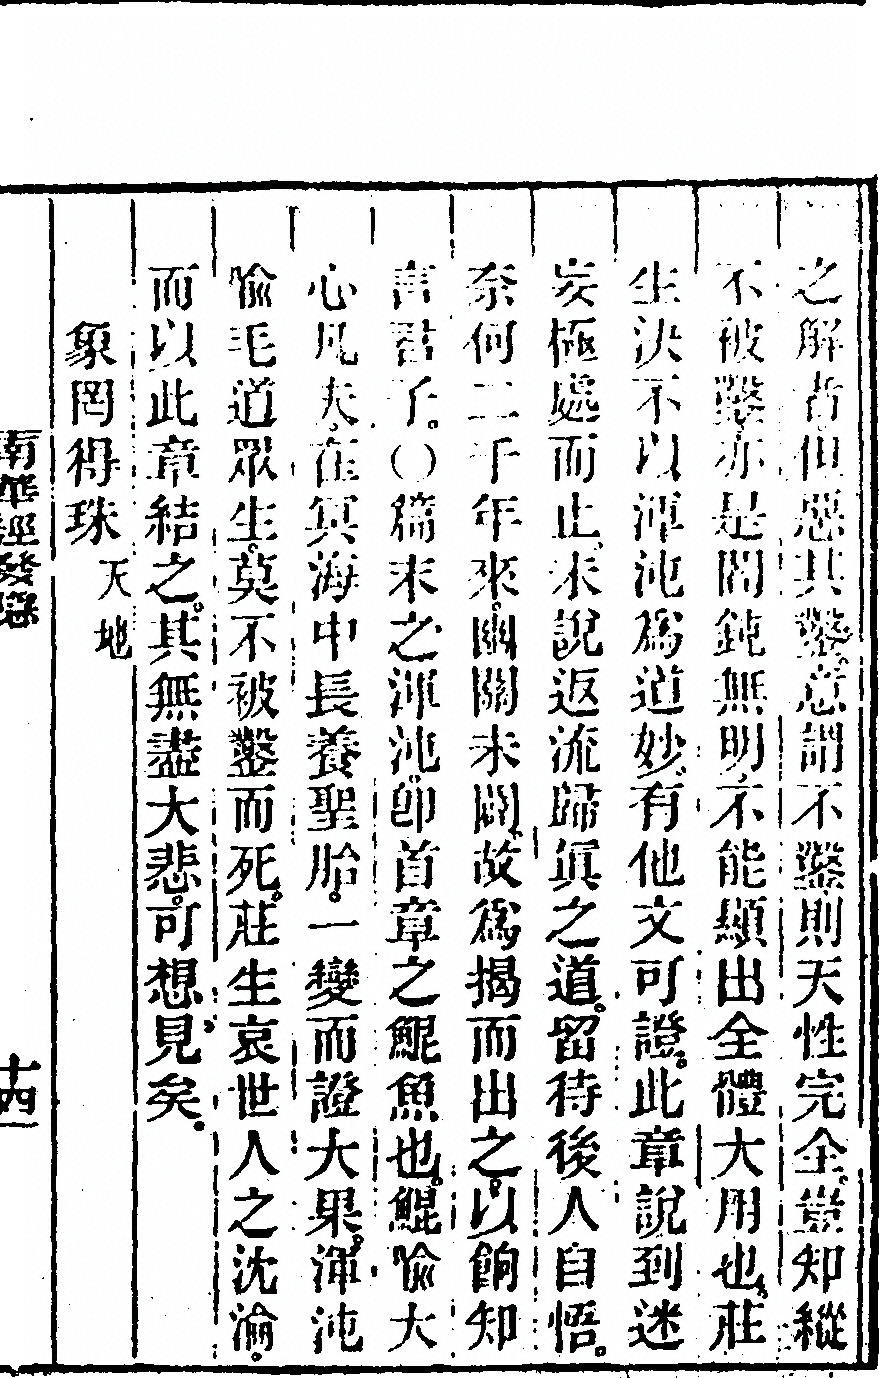 之解者但惡其鑿意謂不鑿則天性完全豈知縱
不被鑿亦是闇鈍無明不能顯出全體大用也莊
生決不以渾沌爲道妙有他文可證此章說到迷
妄極處而止未說返流歸真之道留待後人自悟
奈何二千年來幽關未闢故爲揭而出之以餉知
言君子〇篇末之渾沌卽首章之鯤魚也鯤喻大
心凡夫在冥海中長養聖胎一變而證大果渾沌
喻毛道眾生莫不被鑿而死莊生哀世人之沈淪
而以此章結之其無盡大悲可想見矣
象罔得珠 天地
南華經發隱
十四